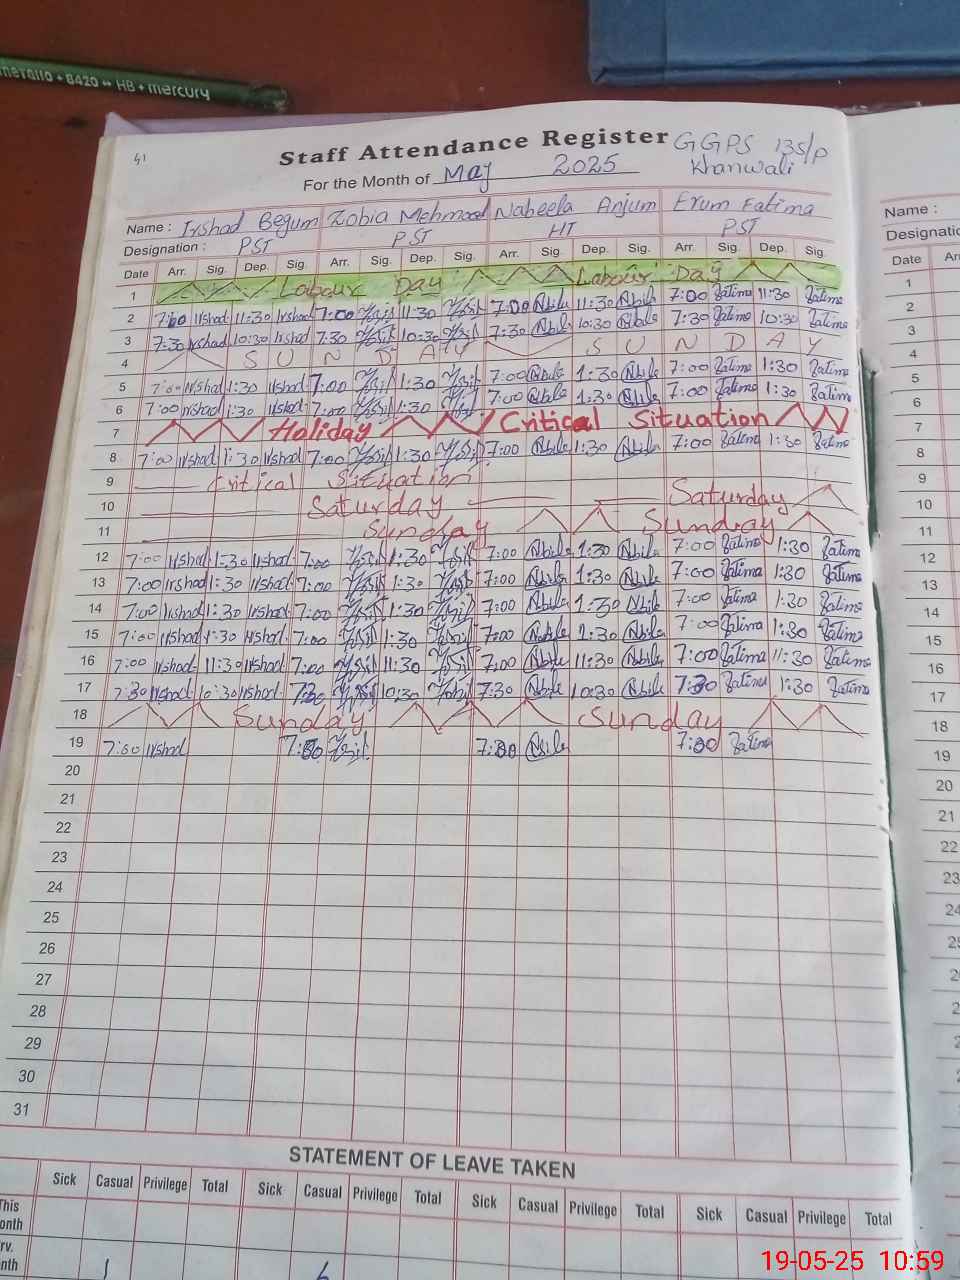 merallo + 8420 •• HB + mercury
41
Staff Attendance Register GGPS 13S/P
For the Month of May 2025 Khanwali
Name : Irshad Begum Zobia Mehmood Nabeela Anjum Erum Fatima
Designation : PST PST HT PST
Date Arr. Sig. Dep. Sig. Arr. Sig. Dep. Sig. Arr. Sig. Dep. Sig. Arr. Sig. Dep. Sig.
1 Labour Day Labour Day
2 7:00 Irshad 11:30 Irshad 7:00 11:30 7:00 Nbile 11:30 Nbile 7:00 Fatima 11:30 Fatima
3 7:30 Irshad 10:30 Irshad 7:30 10:30 7:30 Nbile 10:30 Nbile 7:30 Fatima 10:30 Fatima
4 S U N D A Y S U N D A Y
5 7:00 Irshad 1:30 Irshad 7:00 1:30 7:00 Nbile 1:30 Nbile 7:00 Fatima 1:30 Fatima
6 7:00 Irshad 1:30 Irshad 7:00 1:30 7:00 Nbile 1:30 Nbile 7:00 Fatima 1:30 Fatima
7 Holiday Critical Situation
8 7:00 Irshad 1:30 Irshad 7:00 1:30 7:00 Nbile 1:30 Nbile 7:00 Fatima 1:30 Fatima
9 Critical Situation
10 Saturday Saturday
11 Sunday Sunday
12 7:00 Irshad 1:30 Irshad 7:00 1:30 7:00 Nbile 1:30 Nbile 7:00 Fatima 1:30 Fatima
13 7:00 Irshad 1:30 Irshad 7:00 1:30 7:00 Nbile 1:30 Nbile 7:00 Fatima 1:30 Fatima
14 7:00 Irshad 1:30 Irshad 7:00 1:30 7:00 Nbile 1:30 Nbile 7:00 Fatima 1:30 Fatima
15 7:00 Irshad 1:30 Irshad 7:00 1:30 7:00 Nbile 1:30 Nbile 7:00 Fatima 1:30 Fatima
16 7:00 Irshad 11:30 Irshad 7:00 11:30 7:00 Nbile 11:30 Nbile 7:00 Fatima 11:30 Fatima
17 7:30 Irshad 10:30 Irshad 7:30 10:30 7:30 Nbile 10:30 Nbile 7:30 Fatima 1:30 Fatima
18 Sunday Sunday
19 7:00 Irshad 7:00 7:00 Nbile 7:00 Fatima
20
21
22
23
24
25
26
27
28
29
30
31
STATEMENT OF LEAVE TAKEN
Sick Casual Privilege Total Sick Casual Privilege Total Sick Casual Privilege Total Sick Casual Privilege Total
This
onth
rv.
nth 1 6
Name :
Designatio
Date Arr
1
2
3
4
5
6
7
8
9
10
11
12
13
14
15
16
17
18
19
20
21
22
23
24
19-05-25 10:59